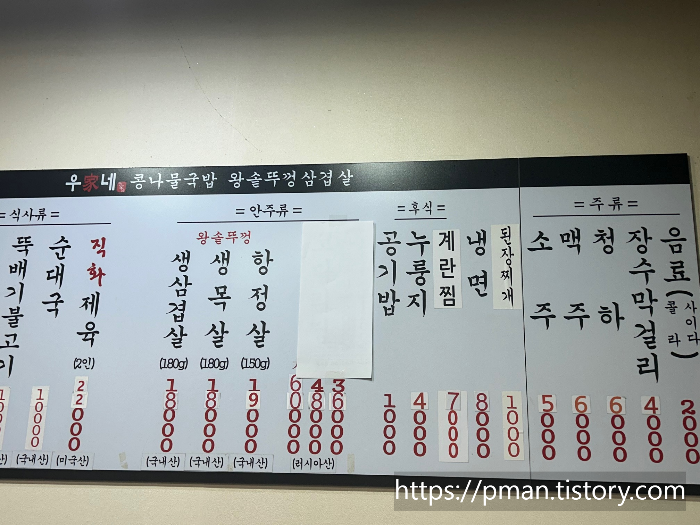 우家네 콩나물국밥 왕솥뚜껑삼겹살
= 식사류 =
뚝배기불고기
순대국
10000
(국내산)
직화제육
(2인)
22000
(미국산)
= 안주류 =
왕솥뚜껑
생삼겹살
(180g)
18000
(국내산)
생목살
(180g)
18000
(국내산)
항정살
(150g)
19000
(국내산)
60000
48000
36000
(러시아산)
= 후식 =
공기밥
1000
누룽지
4000
계란찜
7000
냉면
8000
된장찌개
1000
= 주류 =
소주
5000
맥주
6000
청하
6000
장수막걸리
4000
음료(콜라 사이다)
2000
https://pman.tistory.com